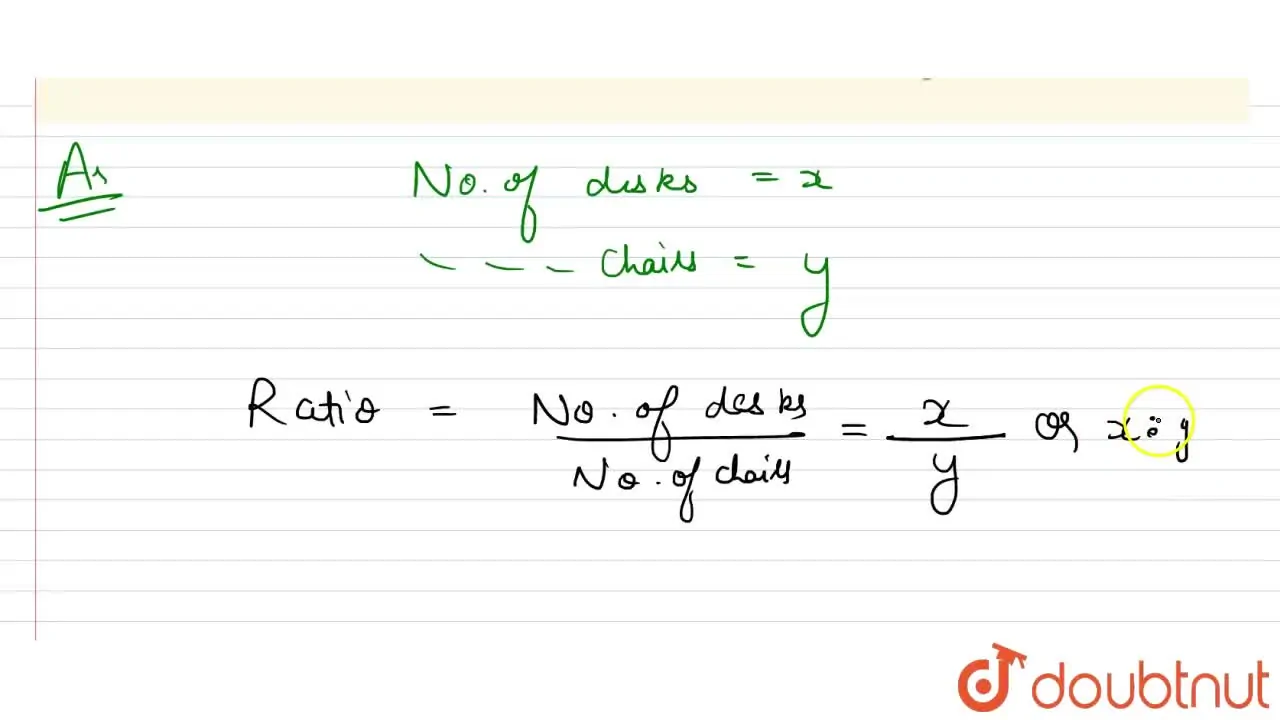 As
No. of desks = x
- - - Chairs = y
Ratio = No. of desks / No. of chairs = x / y or x : y
doubtnut